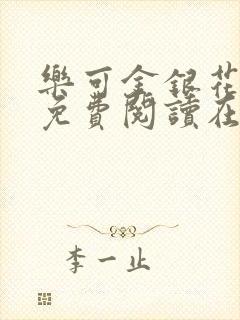 樂可金銀花
免費閱讀在
李一止